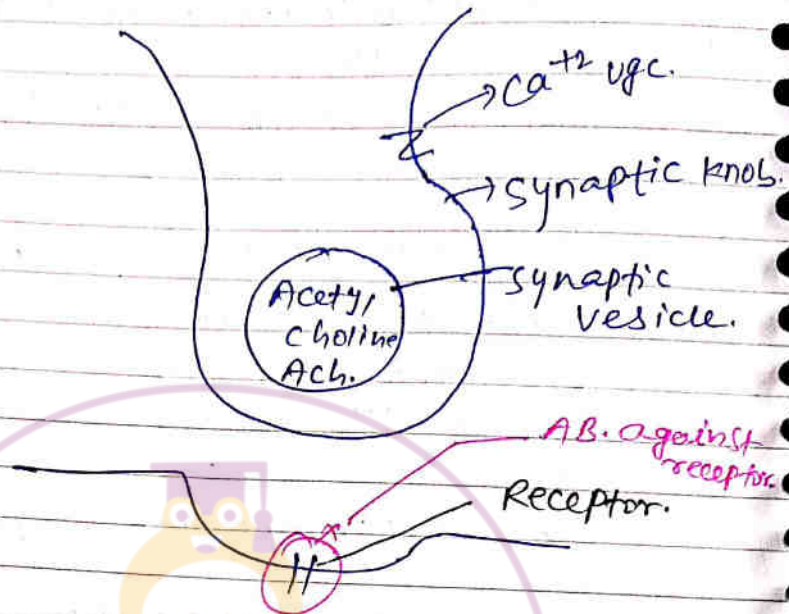 Ca+2 vgc.
Synaptic knob.
Synaptic
vesicle.
Acety,
choline
Ach.
AB. against
receptor.
Receptor.